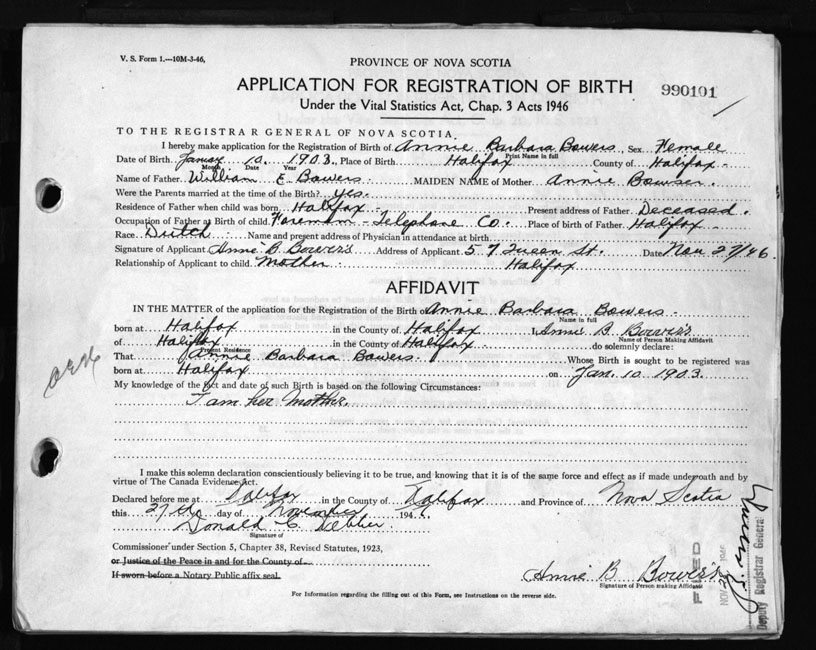 V. S. Form 1.—10M-3-46,
PROVINCE OF NOVA SCOTIA
APPLICATION FOR REGISTRATION OF BIRTH
990101
Under the Vital Statistics Act, Chap. 3 Acts 1946
TO THE REGISTRAR GENERAL OF NOVA SCOTIA.
I hereby make application for the Registration of Birth of Annie Barbara Bowers, Sex Female
Print Name in full
Date of Birth January 10, 1903, Place of Birth Halifax County of Halifax
Month Date Year
Name of Father William E Bowers MAIDEN NAME of Mother Annie Bowser
Were the Parents married at the time of the Birth? yes.
Residence of Father when child was born Halifax Present address of Father Deceased.
Occupation of Father at Birth of child Foreman - Telephone Co. Place of birth of Father Halifax
Race Dutch Name and present address of Physician in attendance at birth
Signature of Applicant Annie B Bowers Address of Applicant 57 Queen St. Date Nov 27/46
Relationship of Applicant to child Mother Halifax
AFFIDAVIT
IN THE MATTER of the application for the Registration of the Birth of Annie Barbara Bowers
Name in full
born at Halifax in the County of Halifax I, Annie B. Bowers
Name of Person Making Affidavit
of Halifax in the County of Halifax do solemnly declare:
Present Residence
That Annie Barbara Bowers Whose Birth is sought to be registered was
born at Halifax on Jan. 10. 1903.
My knowledge of the fact and date of such Birth is based on the following Circumstances:
I am her Mother.
I make this solemn declaration conscientiously believing it to be true, and knowing that it is of the same force and effect as if made underoath and by
virtue of The Canada Evidence Act.
Declared before me at Halifax in the County of Halifax and Province of Nova Scotia
this 27th day of November 194
Donald C.
Signature of
Commissioner under Section 5, Chapter 38, Revised Statutes, 1923,
or Justice of the Peace in and for the County of
If sworn before a Notary Public affix seal.
Annie B Bowers
Signature of Person making Affidavit
For Information regarding the filling out of this Form, see Instructions on the reverse side.
FILED
NOV
Deputy Registrar General